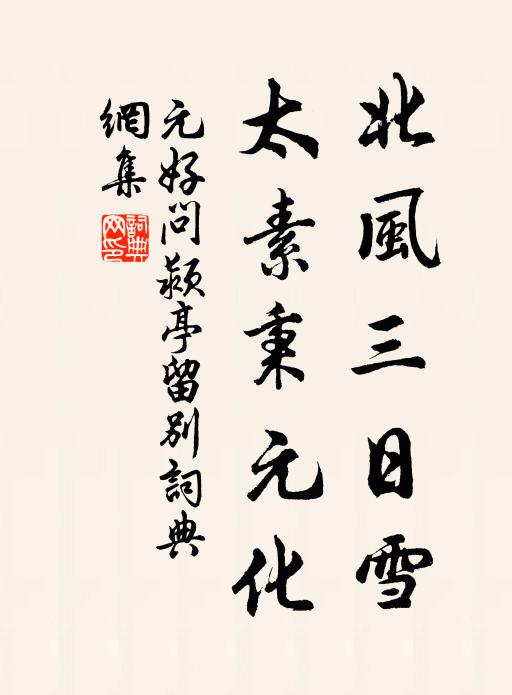 北風三日雪
太素秉元化
元好问潁亭留別詞典
網集
詞典網印